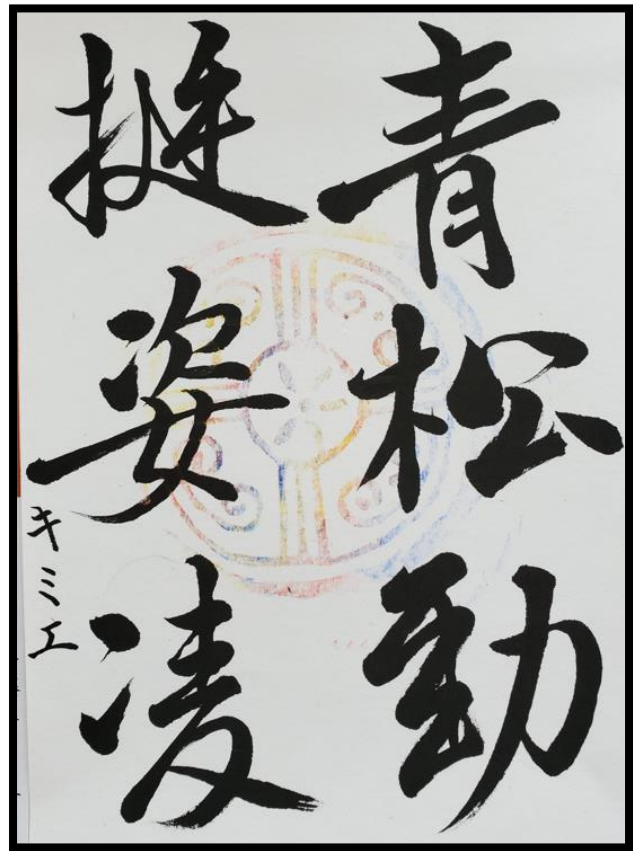 青松勁
挺姿凌
キミエ